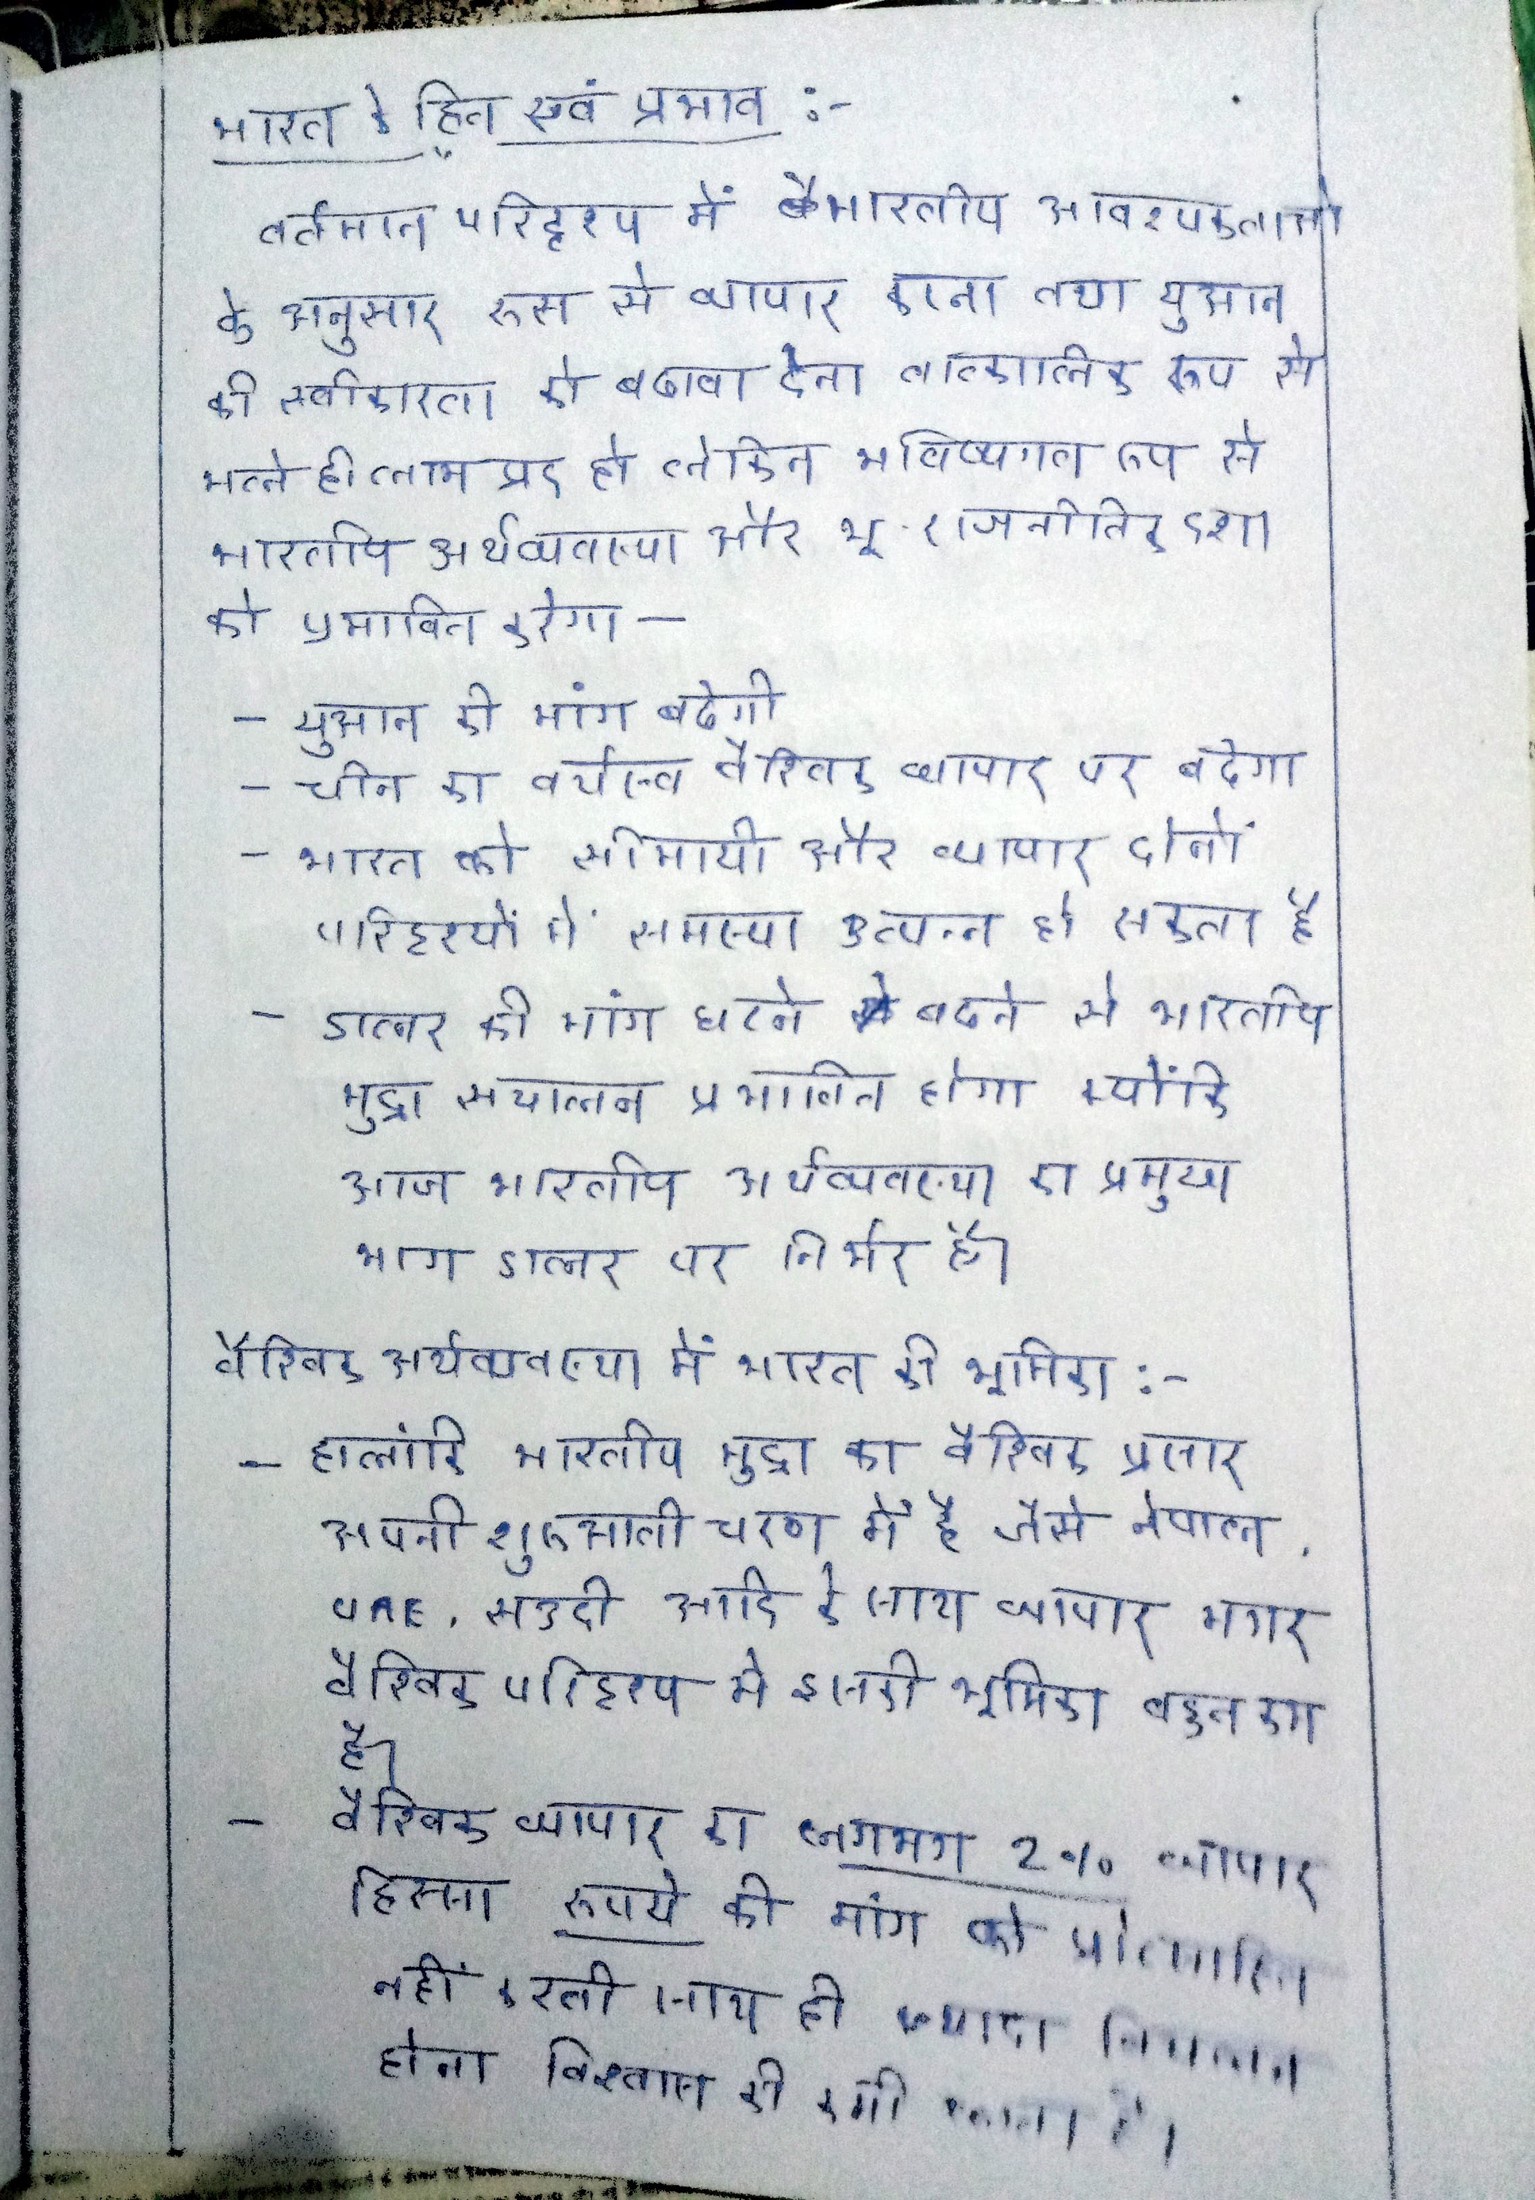 भारत के हित एवं प्रभाव :-
वर्तमान परिदृश्य में भारतीय आवश्यकताओ
के अनुसार रूस से व्यापार करना तथा युआन
की स्वीकारता को बढावा देना तात्कालिक रूप से
भले ही लाभ प्रद हो लेकिन भविष्यगत रूप से
भारतीय अर्थव्यवस्था और भू-राजनीतिक दशा
को प्रभावित करेगा —
- युआन की मांग बढेगी
- चीन का वर्चस्व वैश्विक व्यापार पर बढेगा
- भारत को सीमायी और व्यापार दोनों
परिदृश्यों में समस्या उत्पन्न हो सकता है
- डालर की मांग घटने बढने से भारतीय
मुद्रा संचालन प्रभावित होगा क्योंकि
आज भारतीय अर्थव्यवस्था का प्रमुख
भाग डालर पर निर्भर है।
वैश्विक अर्थव्यवस्था में भारत की भूमिका :-
- हालांकि भारतीय मुद्रा का वैश्विक प्रसार
अपनी शुरूआती चरण में है जैसे नेपाल,
UAE, सउदी आदि के साथ व्यापार मगर
वैश्विक परिदृश्य में इसकी भूमिका बहुत कम
है।
- वैश्विक व्यापार का लगभग 2% व्यापार
हिस्सा रूपये की मांग को प्रोत्साहित
नहीं करती साथ ही ज्यादा
होना विश्वास की कमी है।